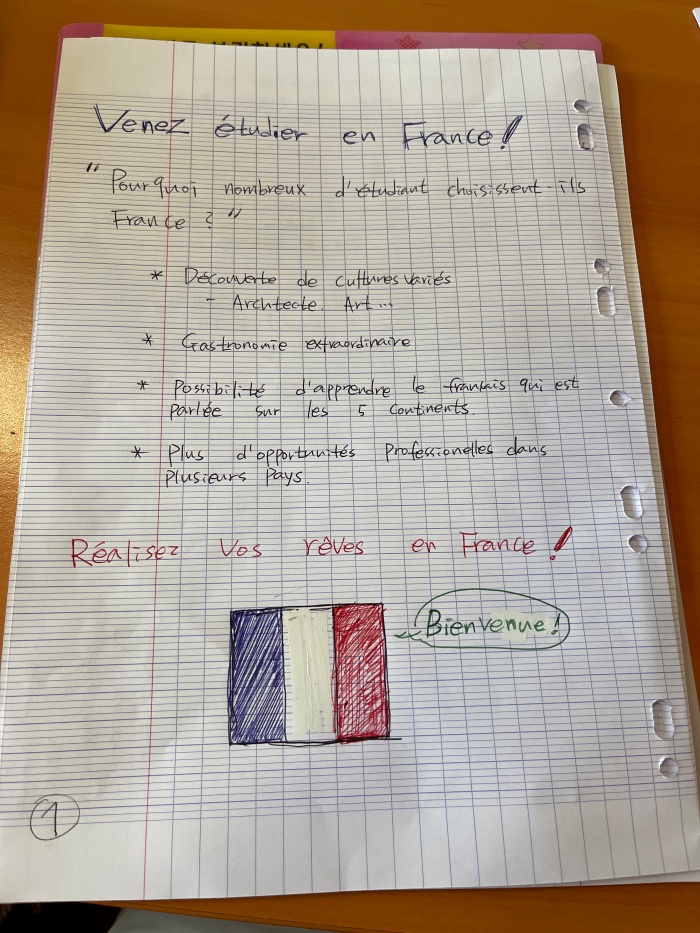 Venez étudier en France!
"Pourquoi nombreux d'étudiant choisissent-ils
France ?"
* Découverte de cultures variés
- Archtecte. Art...
* Gastronomie extraordinaire
* Possibilité d'apprendre le français qui est
parlée sur les 5 continents.
* Plus d'opportunités Professionelles dans
plusieurs pays.
Réalisez vos rêves en France!
Bienvenue!
1